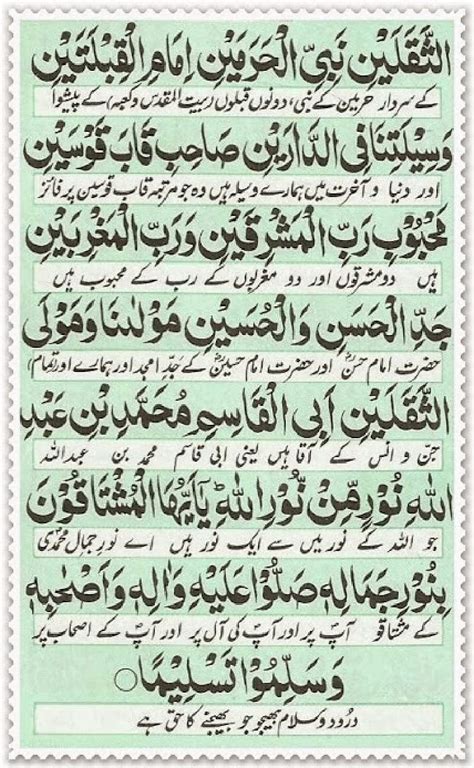 الثَّقَلَيْنِ نَبِيِّ الْحَرَمَيْنِ اِمَامِ الْقِبْلَتَيْنِ
کے سردار حرمین کے نبی، دونوں قبلوں (بیت المقدس و کعبہ) کے پیشوا
وَسِيْلَتِنَا فِي الدَّارَيْنِ صَاحِبِ قَابَ قَوْسَيْنِ
اور دنیا و آخرت میں ہمارے وسیلہ ہیں وہ جو مرتبہ قاب قوسین پر فائز
مَحْبُوْبِ رَبِّ الْمَشْرِقَيْنِ وَرَبِّ الْمَغْرِبَيْنِ
ہیں دو مشرقوں اور دو مغربوں کے رب کے محبوب ہیں
جَدِّ الْحَسَنِ وَالْحُسَيْنِ مَوْلٰىنَا وَمَوْلَى
حضرت امام حسنؓ اور حضرت امام حسینؓ کے جدِّ امجد اور ہمارے اور (تمام)
الثَّقَلَيْنِ اَبِي الْقَاسِمِ مُحَمَّدِ بْنِ عَبْدِ
جن و انس کے آقا ہیں یعنی ابی قاسم محمد بن عبداللہ
اللهِ نُوْرٍ مِّنْ نُّوْرِ اللهِ يٰاَيُّهَا الْمُشْتَاقُوْنَ
جو اللہ کے نور میں سے ایک نور ہیں اے نورِ جمالِ محمدی
بِنُوْرِ جَمَالِهٖ صَلُّوْا عَلَيْهِ وَاٰلِهٖ وَاَصْحَابِهٖ
کے مشتاقو آپؐ پر اور آپؐ کی آل پر اور آپؐ کے اصحاب پر
وَسَلِّمُوْا تَسْلِيْمًا ○
درود و سلام بھیجو جو بھیجنے کا حق ہے